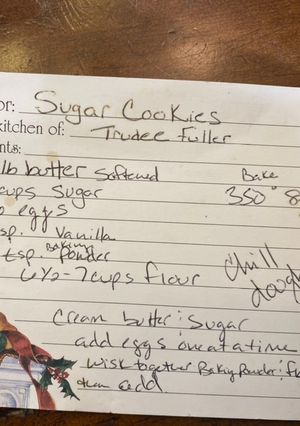 or: Sugar Cookies
kitchen of: Trudee Fuller
nts:
lb butter softened Bake
cups Sugar 350° 8
eggs
sp. Vanilla
tsp. Baking Powder
6½-7 cups flour Chill dough
Cream butter & Sugar
add eggs one at a time
wisk together Baking Powder & fl
then add